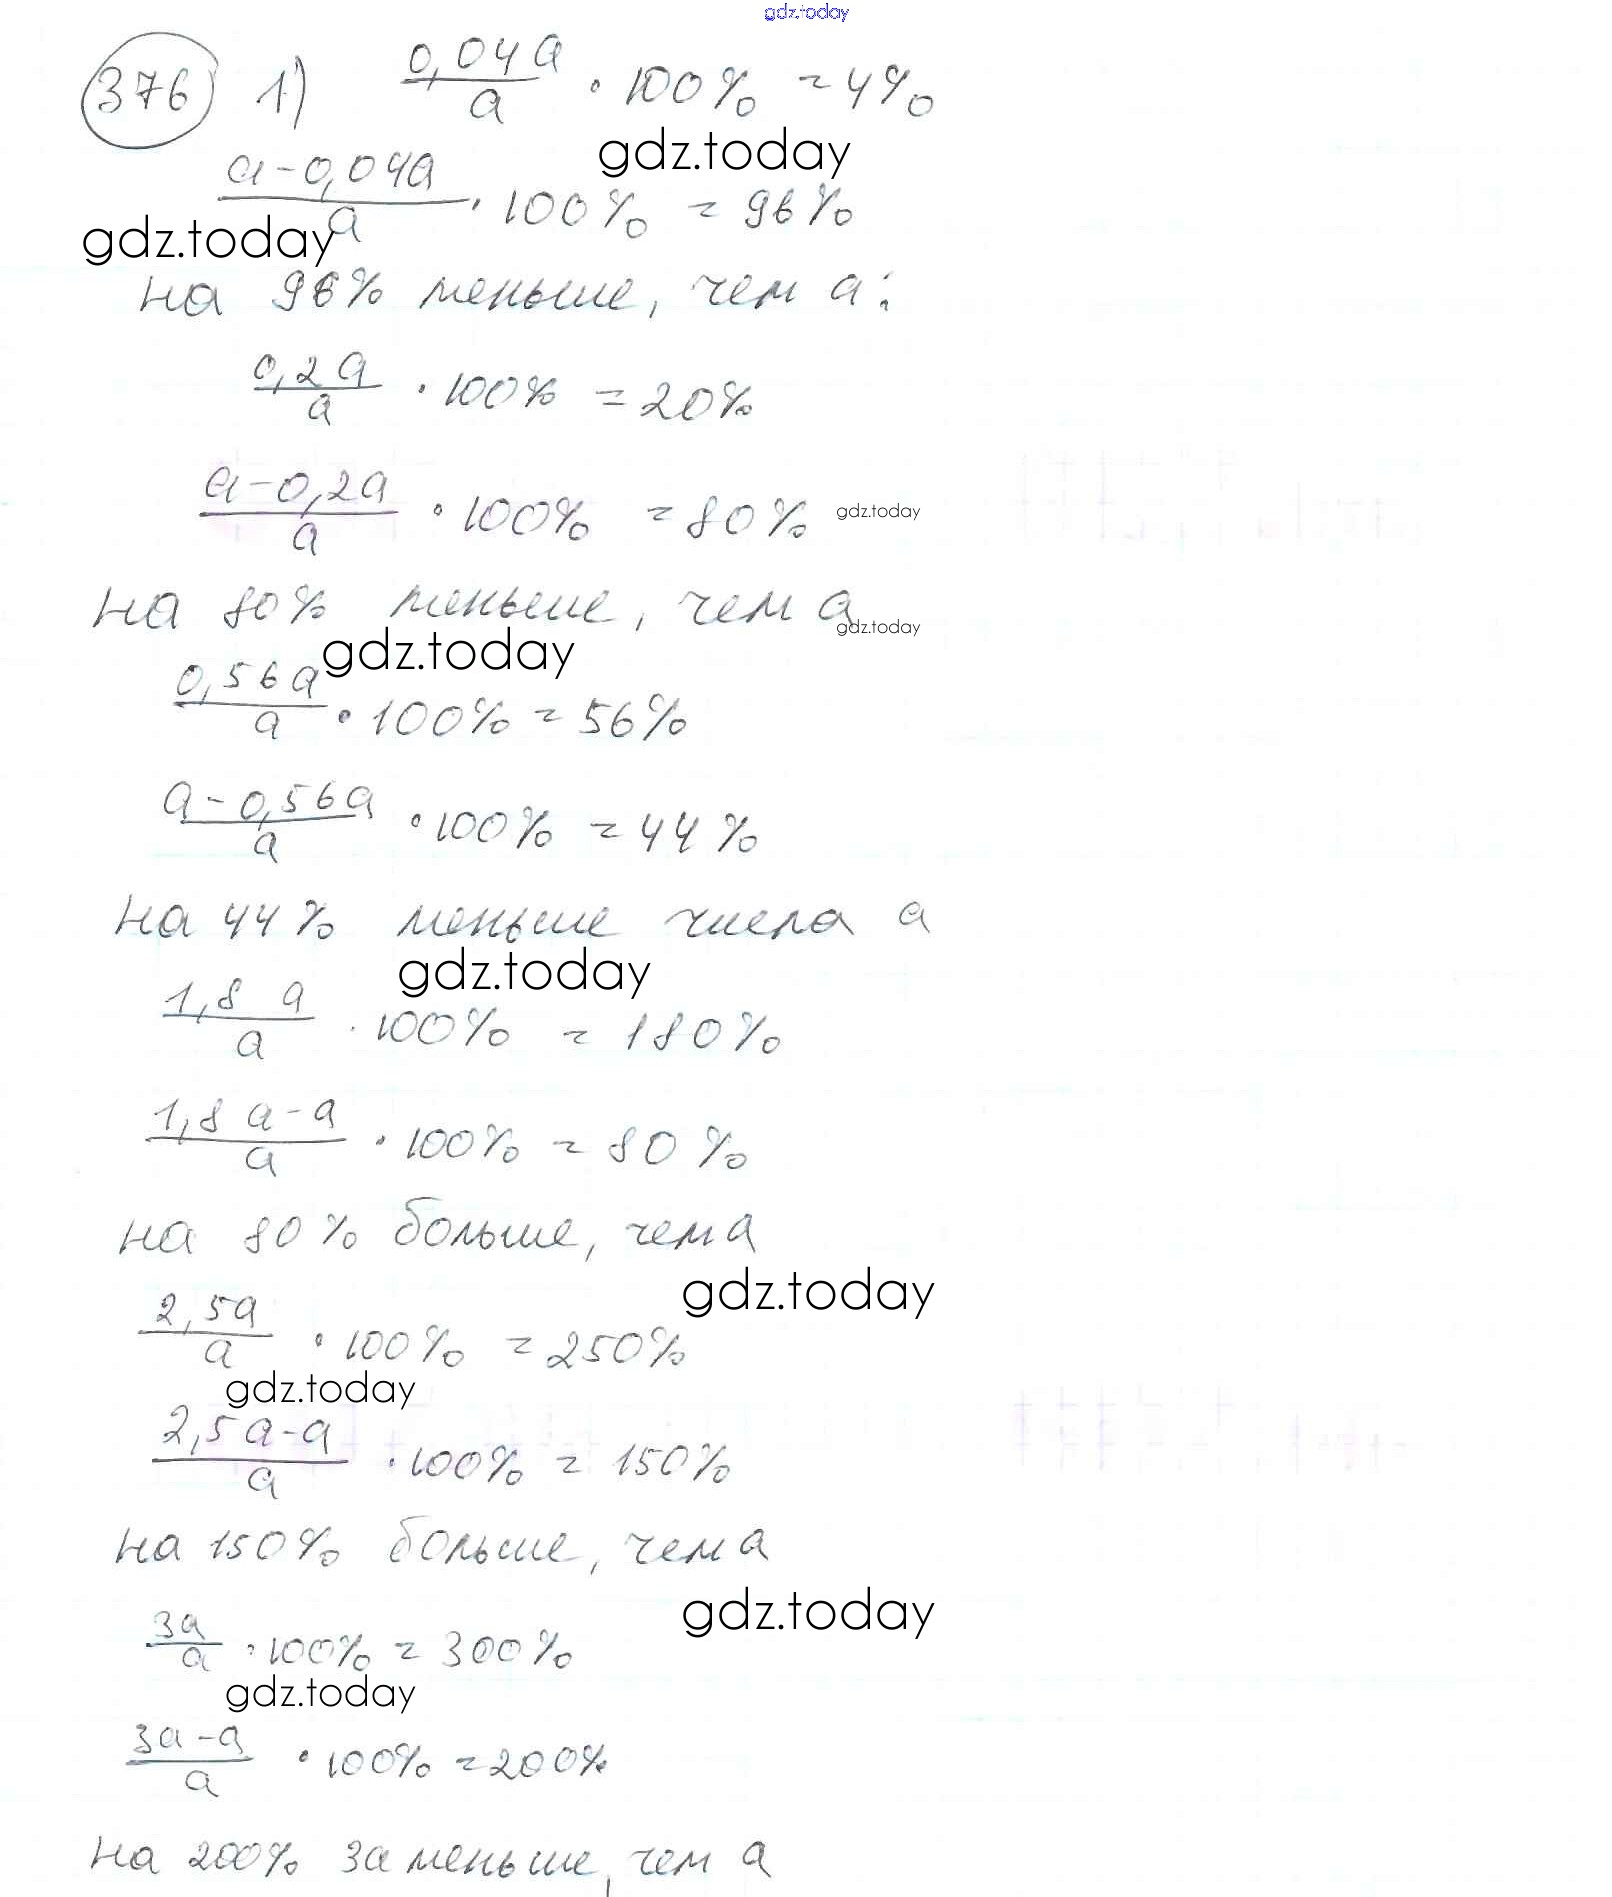 gdz.today
376 1) 0,04a/a · 100% = 4%
gdz.today
a-0,04a/a · 100% = 96%
gdz.today
на 96% меньше, чем a:
0,2a/a · 100% = 20%
a-0,2a/a · 100% = 80%
gdz.today
на 80% меньше, чем a
gdz.today
gdz.today
0,56a/a · 100% = 56%
a-0,56a/a · 100% = 44%
на 44% меньше числа a
gdz.today
1,8 a/a · 100% = 180%
1,8 a-a/a · 100% = 80%
на 80% больше, чем a
gdz.today
2,5a/a · 100% = 250%
gdz.today
2,5a-a/a · 100% = 150%
на 150% больше, чем a
gdz.today
3a/a · 100% = 300%
gdz.today
3a-a/a · 100% = 200%
на 200% 3a меньше, чем a